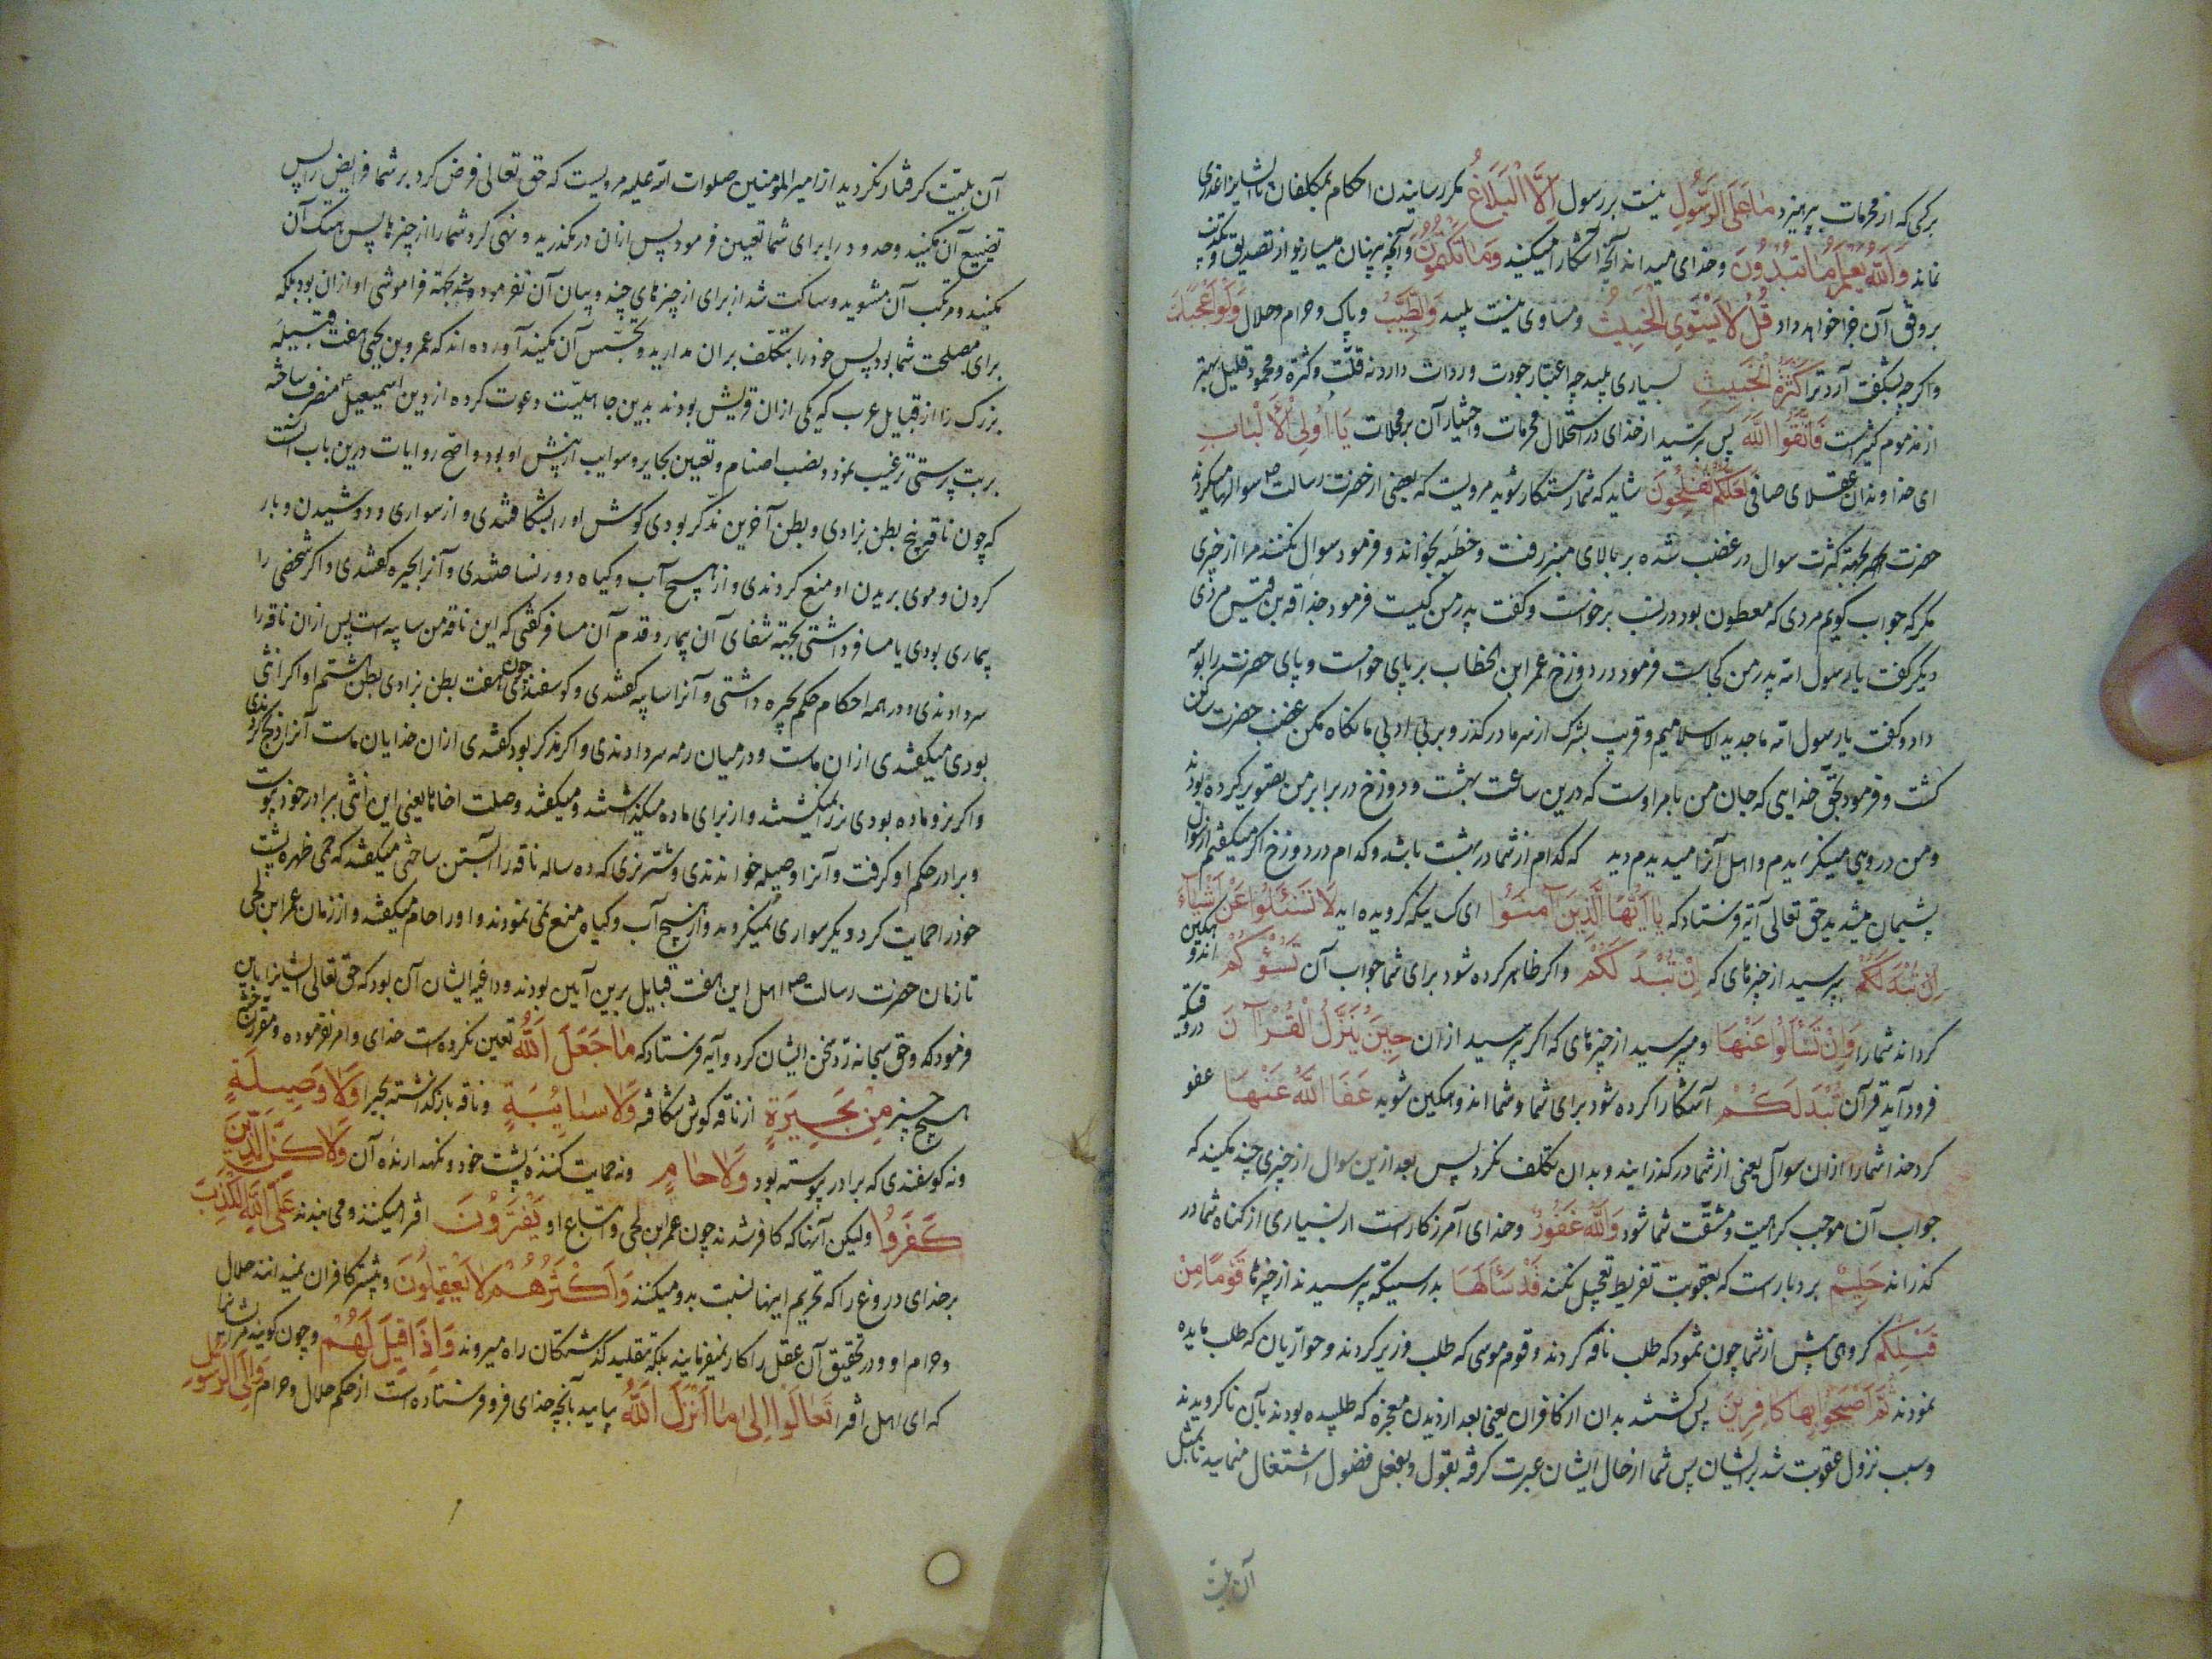 برکی که از محرمات بپرهیزد مَا عَلَی الرَّسُولِ نیست بر رسول اِلَّا الْبَلَاغُ مکر رسانیدن احکام بمکلفان تا ایشانرا عذری
نماند وَاللّهُ یَعْلَمُ مَا تُبْدُونَ و خدای میداند آنچه آشکارا میکنید وَمَا تَکْتُمُونَ و آنچه پنهان میسازید از تصدیق و تکذیب و
بر وفق آن جزا خواهد داد قُلْ لَا یَسْتَوِی الْخَبِیثُ و مساوی نیست پلید وَالطَّیِّبُ و پاک و حرام و حلال وَلَوْ اَعْجَبَکَ
واکرچه بشکفت آرد ترا کَثْرَةُ الْخَبِیثِ بسیاری پلید چه اعتبار جودت و ردات دارد نه قلّت و کثرة و محمود قلیل بهتر
از مذموم کثیرست فَاتَّقُوا اللّهَ پس بترسید از خدای در استحلال محرمات و اختیار آن بر محللات یَا اُولِی الْاَلْبَابِ
ای خداوندان عقلهای صافی لَعَلَّکُمْ تُفْلِحُونَ شاید که شما رستکار شوید مرویست که بعضی از حضرت رسالت ص سوالها میکردند
حضرت بجهة کثرت سوال در غضب شده بر بالای منبر رفت و خطبه بخواند و فرمود سوال نکنند مرا از چیزی
مکر که جواب کویم مردی که مطعون بود در نسب برخواست و کفت پدر من کیست فرمود حذاقه بن قیس مردی
دیگر کفت یا رسول الله پدر من کجاست فرمود در دوزخ عمر ابن الخطاب بر پای خواست و پای حضرت را بوسه
داد و کفت یا رسول الله ما جدید الاسلامیم و قریب بشرک از سر ما درکذر و بر بی ادبی ما نکاه مکن غضب حضرت ساکن
کشت و فرمود بحق خدایی که جان من بامر اوست که درین ساعت بهشت و دوزخ در برابر من تصویر کرده بودند
و من در وی مینکریدم و اهل آنرا میدیدم که کدام از شما در بهشت باشد و کدام در دوزخ اکر میکفتم از سوال
پشیمان میشدید حق تعالی آیه فرستاد که یَا اَیُّهَا الَّذِینَ آمَنُوا ای کسانیکه کرویده اید لَا تَسْئَلُوا عَنْ اَشْیَاءَ
اِنْ تُبْدَ لَکُمْ مپرسید از چیزهای که اِنْ تُبْدَ لَکُمْ واکر ظاهر کرده شود برای شما جواب آن تَسُؤْکُمْ اندوهکین
کرداند شما را وَاِنْ تَسْأَلُوا عَنْهَا و مپرسید از چیزهای که اکر بپرسید ازان حِینَ یُنَزَّلُ الْقُرْآنَ در وقتیکه
فرود آید قرآن تُبْدَ لَکُمْ آشکارا کرده شود برای شما و شما اندوهکین شوید عَفَا اللّهُ عَنْهَا عفو
کرد خدا شما را ازان سوال یعنی از شما درکذرانید و بدان تکلف نکرد پس بعد ازین سوال از چیزی چند مکنید که
جواب آن موجب کراهیت و مشقّت شما شود وَاللّهُ غَفُورٌ و خدای آمرزکارست از بسیاری از کناه شما در
کذراند حَلِیمٌ بردبارست که بعقوبت تفریط تعجیل نکند قَدْ سَأَلَهَا بدرستیکه پرسیدند از چیزها قَوْمًا مِنْ
قَبْلِکُمْ کروهی پیش از شما چون ثمود که طلب ناقه کردند و قوم موسی که طلب وزیر کردند و حواریان که طلب مایده
نمودند ثُمَّ اَصْبَحُوا بِهَا کَافِرِینَ پس کشتند بدان از کافران یعنی بعد از دیدن معجزه که طلبیده بودند بآن ناکرویدند
و سبب نزول عقوبت شد بر ایشان پس شما از حال ایشان عبرت کرفته بقول و بفعل فضول اشتغال منمایید تا بمثل
آن بلیت
آن بلیّت کرفتار نکردید از امیر المومنین صلوات الله علیه مرویست که حق تعالی فرض کرد بر شما فرایض را پس
تضییع آن مکنید و حدود را برای شما تعیین فرمود پس ازان در مکذرید و نهی کرد شما را از چیزها پس هتک آن
مکنید و مرتکب آن مشوید و ساکت شد از برای از چیزهای چند و بیان آن نفرمود و نه بجهة فراموشی او ازان بود بلکه
برای مصلحت شما بود پس خود را بتکلف بران مدارید و تجسّس آن مکنید آورده اند که عمرو بن لحی هفت قبیله
بزرک را از قبایل عرب که یکی ازان قریش بودند بدین جاهلیّت دعوت کرده از دین اسمعیل ع منصرف ساخته
بر بت پرستی ترغیب نمود و نصب اصنام و تعیین بحایر و سوایب از پیش او بود و اصح روایات درین باب آنست
که چون ناقه پنج بطن بزادی و بطن آخرین مذکّر بودی کوش او را بشکافتندی و از سواری و دوشیدن و بار
کردن و موی بریدن او منع کردندی و از هیچ آب و کیاه دور نساختندی و آنرا بحیره کفتندی و اکر شخصی را
بیماری بودی یا مسافر داشتی بجهة شفای آن بیمار و قدم آن مسافر کفتی که این ناقه من سایبه است پس ازان ناقه را
سر دادندی و در همه احکام حکم بحیره داشتی و آنرا سایبه کفتندی و کوسفند چون هفت بطن بزادی بطن هشتم او اکر انثی
بودی میکفتندی ازان ماست و در میان رمه سر دادندی و اکر مذکر بود کفتندی ازان خدایان ماست آنرا ذبح کردندی
واکر نر و ماده بودی نر نمیکشتند و از برای ماده میکذاشتند و میکفتند وصلت اخاها یعنی این انثی ببرادر خود پیوست
و برادر حکم او کرفت و آنرا وصیله خواندندی و شتر نری که ده ساله ناقه را آبستن ساختی میکفتند که حمی ظهره پشت
خود را حمایت کرد و دیکر سواری نمیکردند و از هیچ آب و کیاه منع نمی نمودند و او را حام میکفتند و از زمان عمر ابن لحی
تا زمان حضرت رسالت ص اهل این هفت قبایل برین آیین بودند و داعیه ایشان آن بود که حق تعالی ایشانرا باین
فرموده و حق سبحانه رد سخن ایشان کرد و آیه فرستاد که مَا جَعَلَ اللّهُ تعیین نکرده است خدای و امر نفرموده و مقرر نساخته
هیچ چیز مِنْ بَحِیرَةٍ از ناقه کوش شکافته وَلَا سَایِبَةٍ و ناقه بازکذاشته بچرا وَلَا وَصِیلَةٍ
و نه کوسفندی که برادر پیوسته بود وَلَا حَامٍ و نه حمایت کننده پشت خود و نکهدارنده آن وَلَکِنَّ الَّذِینَ
کَفَرُوا و لیکن آنها که کافر شدند چون عمر ابن لحی و اتباع او یَفْتَرُونَ افترا میکنند و می بندند عَلَی اللّهِ الْکَذِبَ
بر خدای دروغ را که تحریم اینها نسبت بدو میکنند وَاَکْثَرُهُمْ لَا یَعْقِلُونَ و بیشتر کافران نمیدانند حلال
و حرام او و در تحقیق آن عقل را کار نمیفرمایند بلکه بتقلید کذشتکان راه میروند وَاِذَا قِیلَ لَهُمْ و چون کویند مر ایشانرا
که ای اهل افترا تَعَالَوْا اِلَی مَا اَنْزَلَ اللّهُ بیایید بآنچه خدای فرو فرستاده است از حکم حلال و حرام وَاِلَی الرَّسُولِ